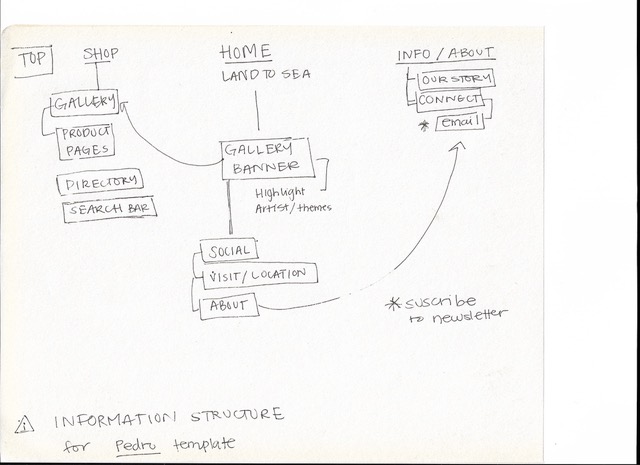 TOP
SHOP
GALLERY
PRODUCT
PAGES
DIRECTORY
SEARCH BAR
HOME
LAND TO SEA
GALLERY
BANNER
Highlight
Artist/themes
SOCIAL
VISIT/LOCATION
ABOUT
INFO/ABOUT
OUR STORY
CONNECT
* email
* suscribe
to newsletter
i INFORMATION STRUCTURE
for Pedro template